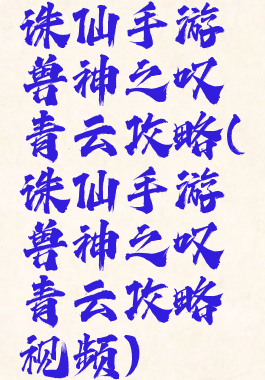 诛仙手游
兽神之叹
青云攻略(
诛仙手游
兽神之叹
青云攻略
视频)